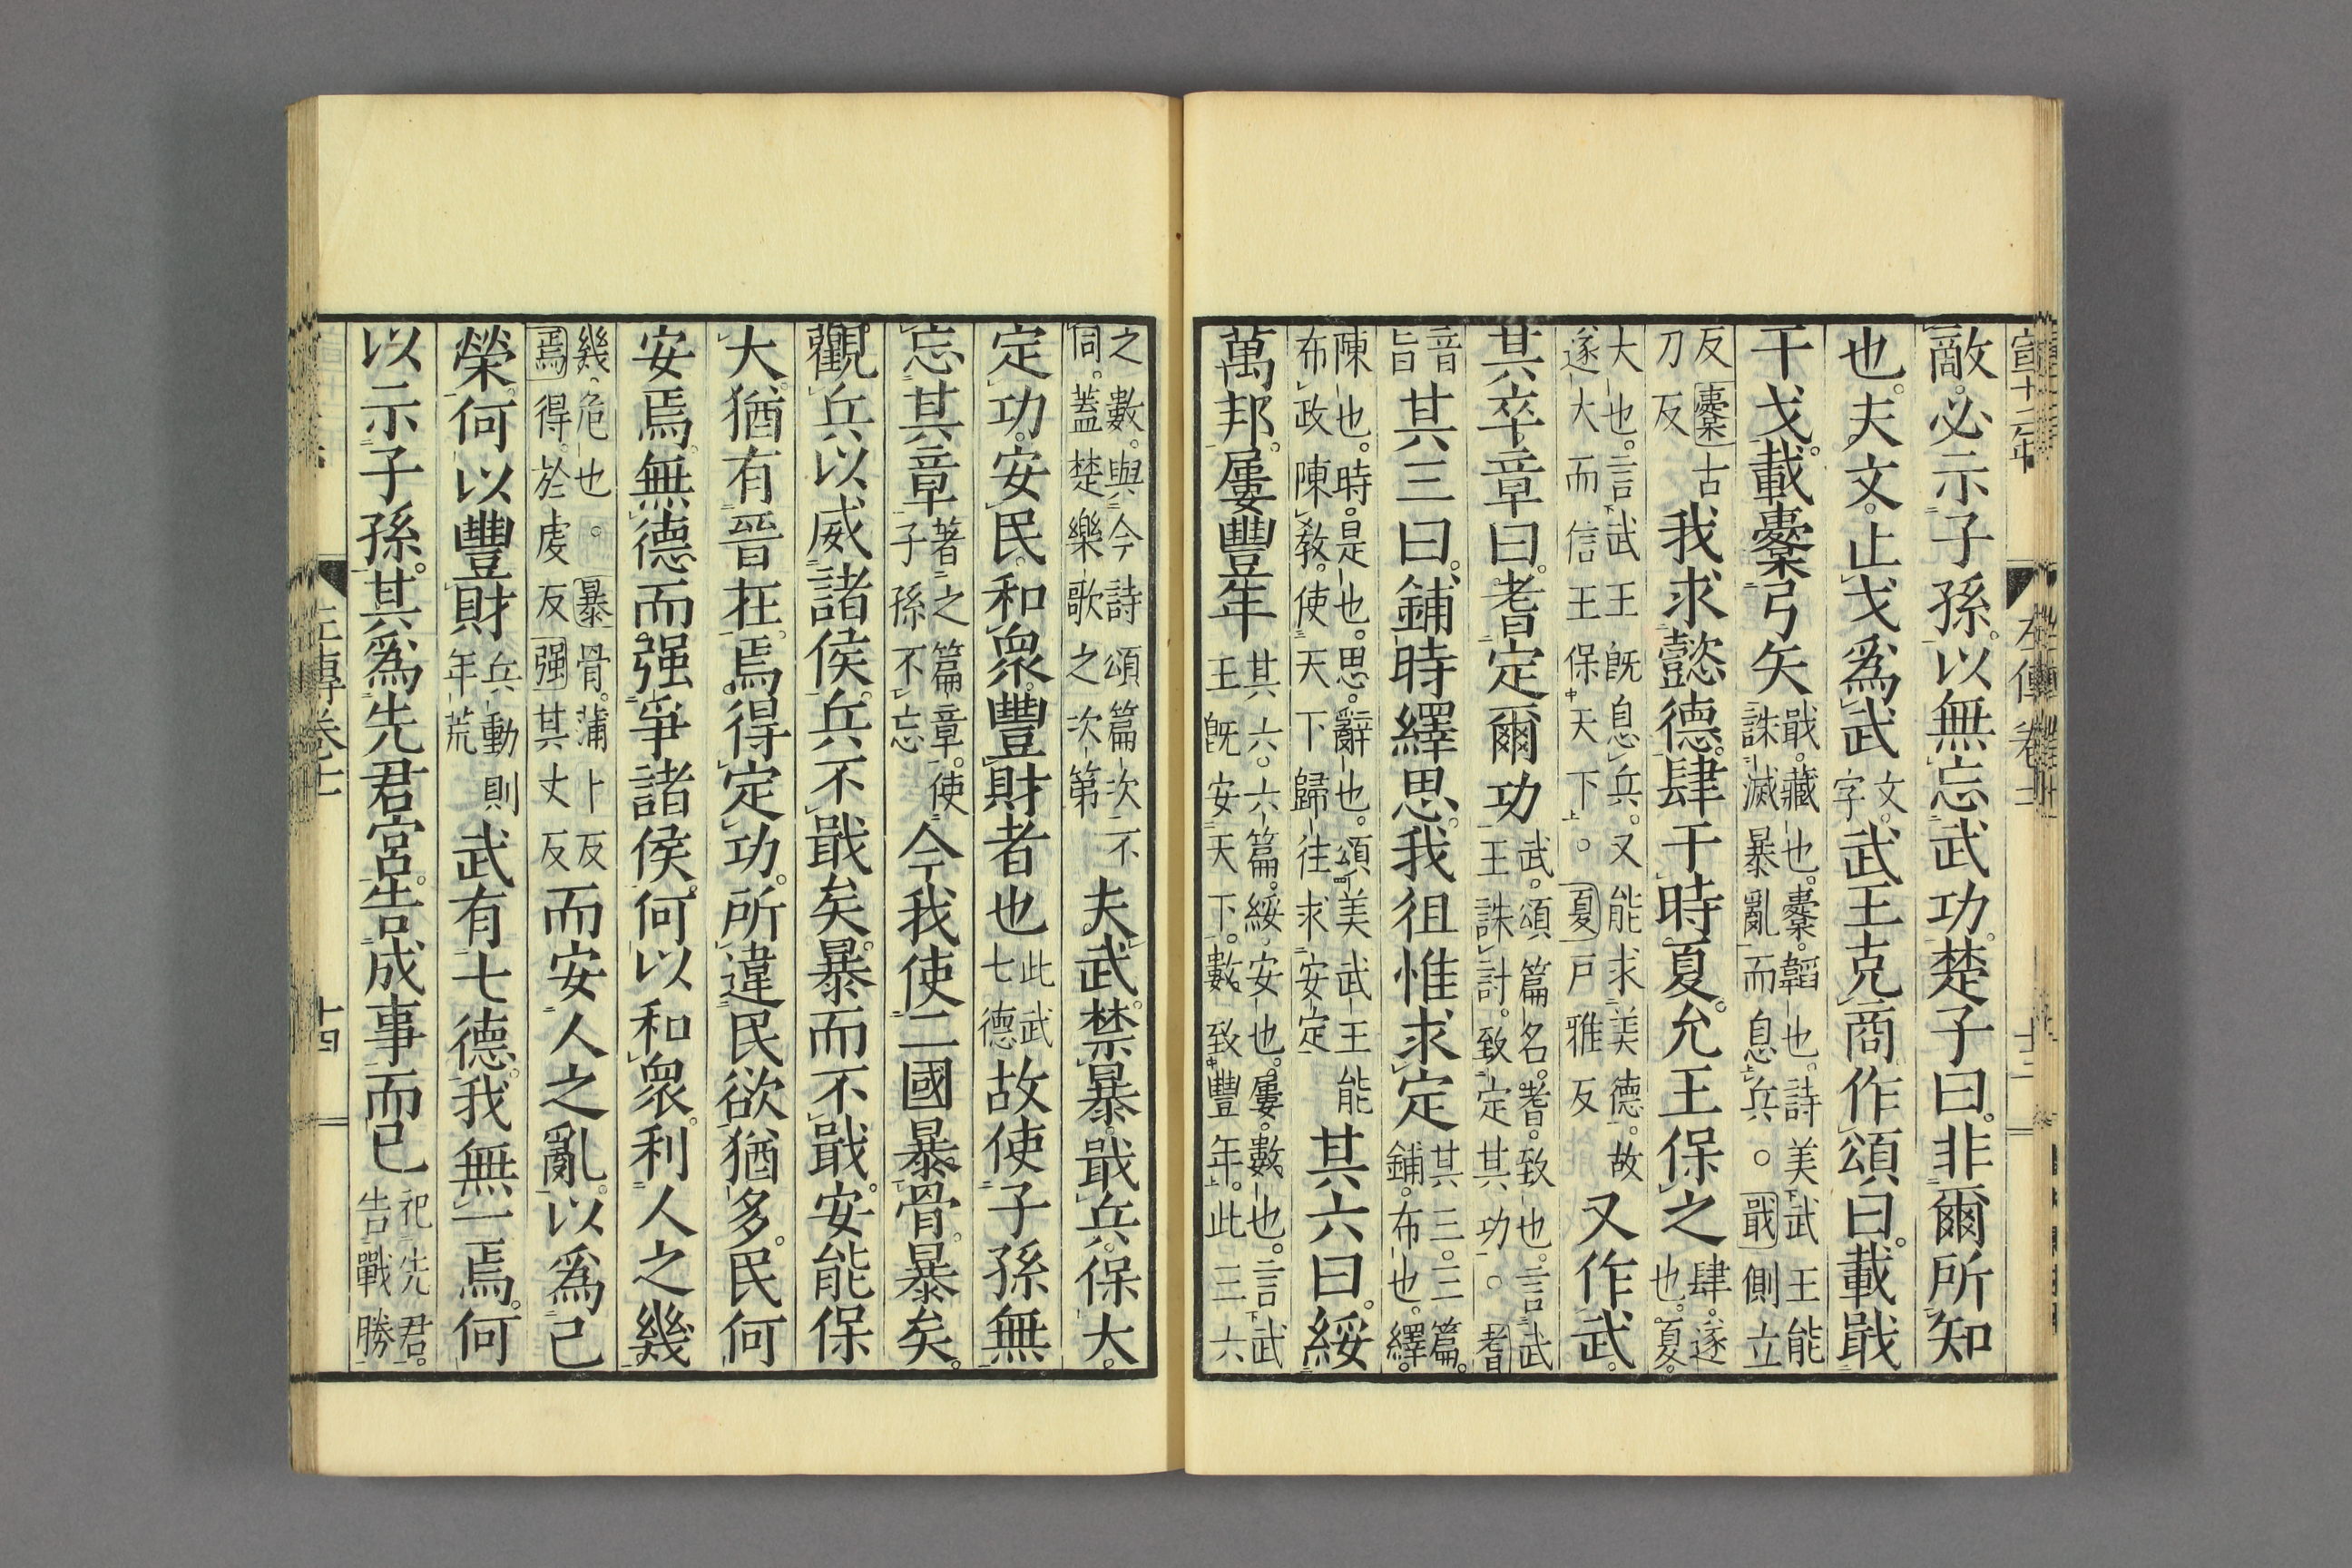 宣十二年
左傳卷
敵必示子孫以無忘武功楚子曰非爾所知
也夫文止戈爲武文字武王克商作頌曰載戢
干戈載櫜弓矢戢藏也櫜韜也詩美武王能誅滅暴亂而息兵。戢側立
反櫜古刀反我求懿德肆于時夏允王保之肆遂也夏
大也言武王既息兵又能求美德故遂大而信王保天下。夏戸雅反又作武
其卒章曰耆定爾功武頌篇名耆致也言武王誅討致定其功。耆
音旨其三曰鋪時繹思我徂惟求定其三三篇鋪布也繹
陳也時是也思辭也頌美武王能布政陳教使天下歸往求安定其六曰綏
萬邦屢豐年其六六篇綏安也屢數也言武王既安天下數致豐年此三六
之數與今詩頌篇次不同蓋楚樂歌之次第夫武禁暴戢兵保大
定功安民和衆豐財者也此武七德故使子孫無
忘其章著之篇章使子孫不忘今我使二國暴骨暴矣
觀兵以威諸侯兵不戢矣暴而不戢安能保
大猶有晉在焉得定功所違民欲猶多民何
安焉無德而强爭諸侯何以和衆利人之幾
幾危也。暴骨蒲卜反焉得於虔反强其丈反而安人之亂以爲己
榮何以豐財兵動則年荒武有七德我無一焉何
以示子孫其爲先君宮告成事而已祀先君告戰勝
左傳卷十一
十四